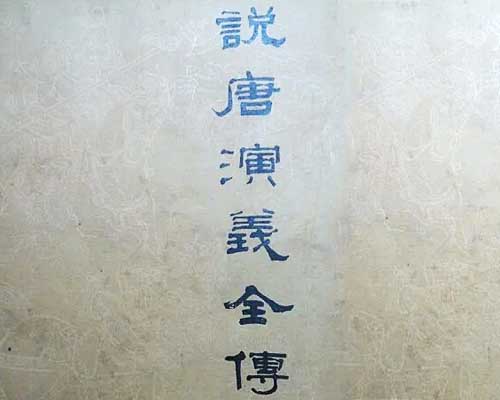 說唐演義全傳